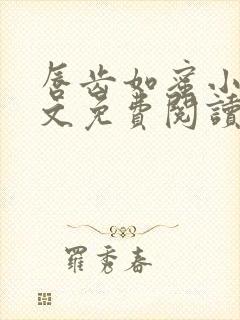 唇齿如蜜小
文免費閱讀
羅秀春